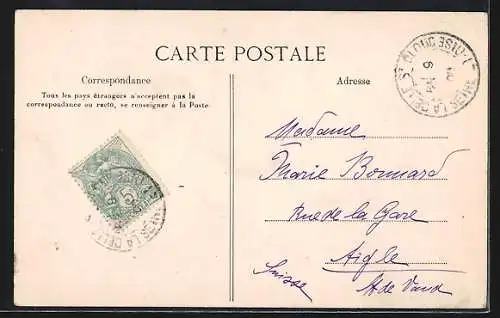 CARTE POSTALE
Correspondance
Tous les pays étrangers n'acceptent pas la
correspondance au recto, se renseigner à la Poste.
Adresse
Madame
Marie Bonnard
Rue de la Gare
Aigle
Suisse
Ct de Vaud
5